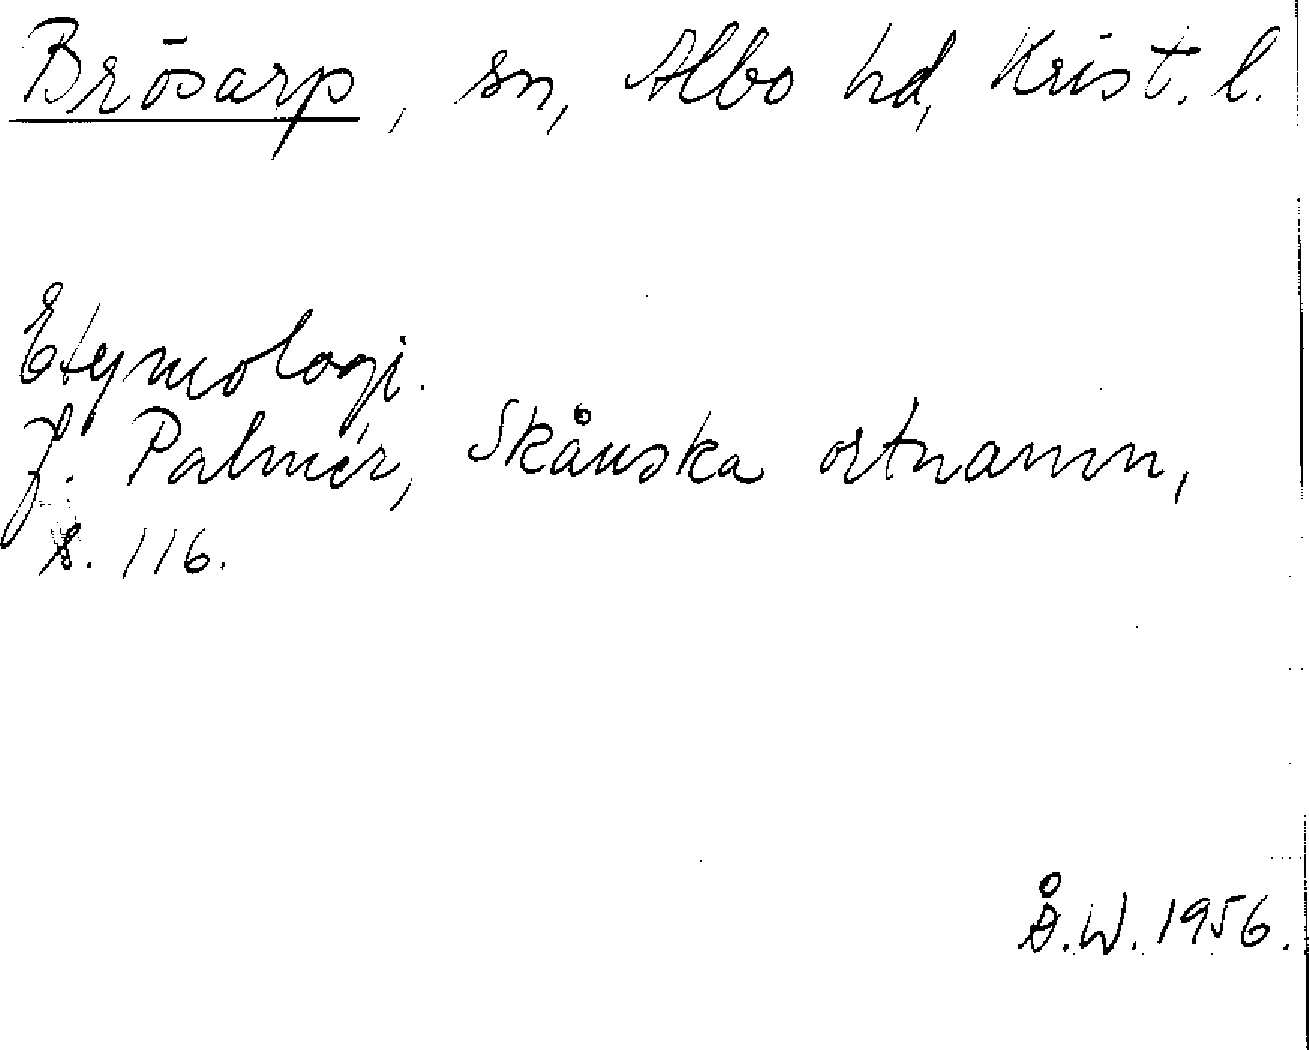 Brösarp, sn, Albo hd, Krist. l.
Etymologi.
J. Palmér, Skånska ortnamn,
s. 116.
Å.W. 1956.